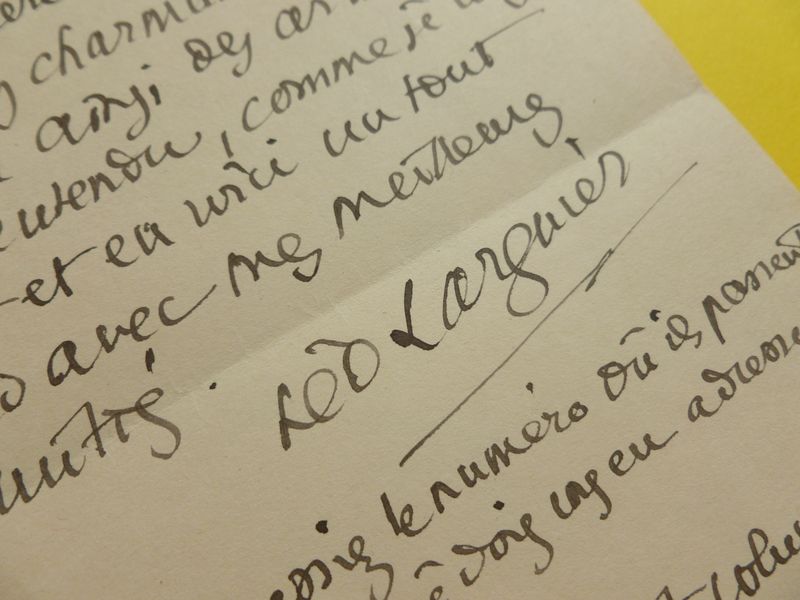 charman
ainsi des ar
entendu, comme je
et en voici un tout
avec mes meilleurs
amitiés.
Léo Larguier
le numéro où ils passent
dois ing en adresse